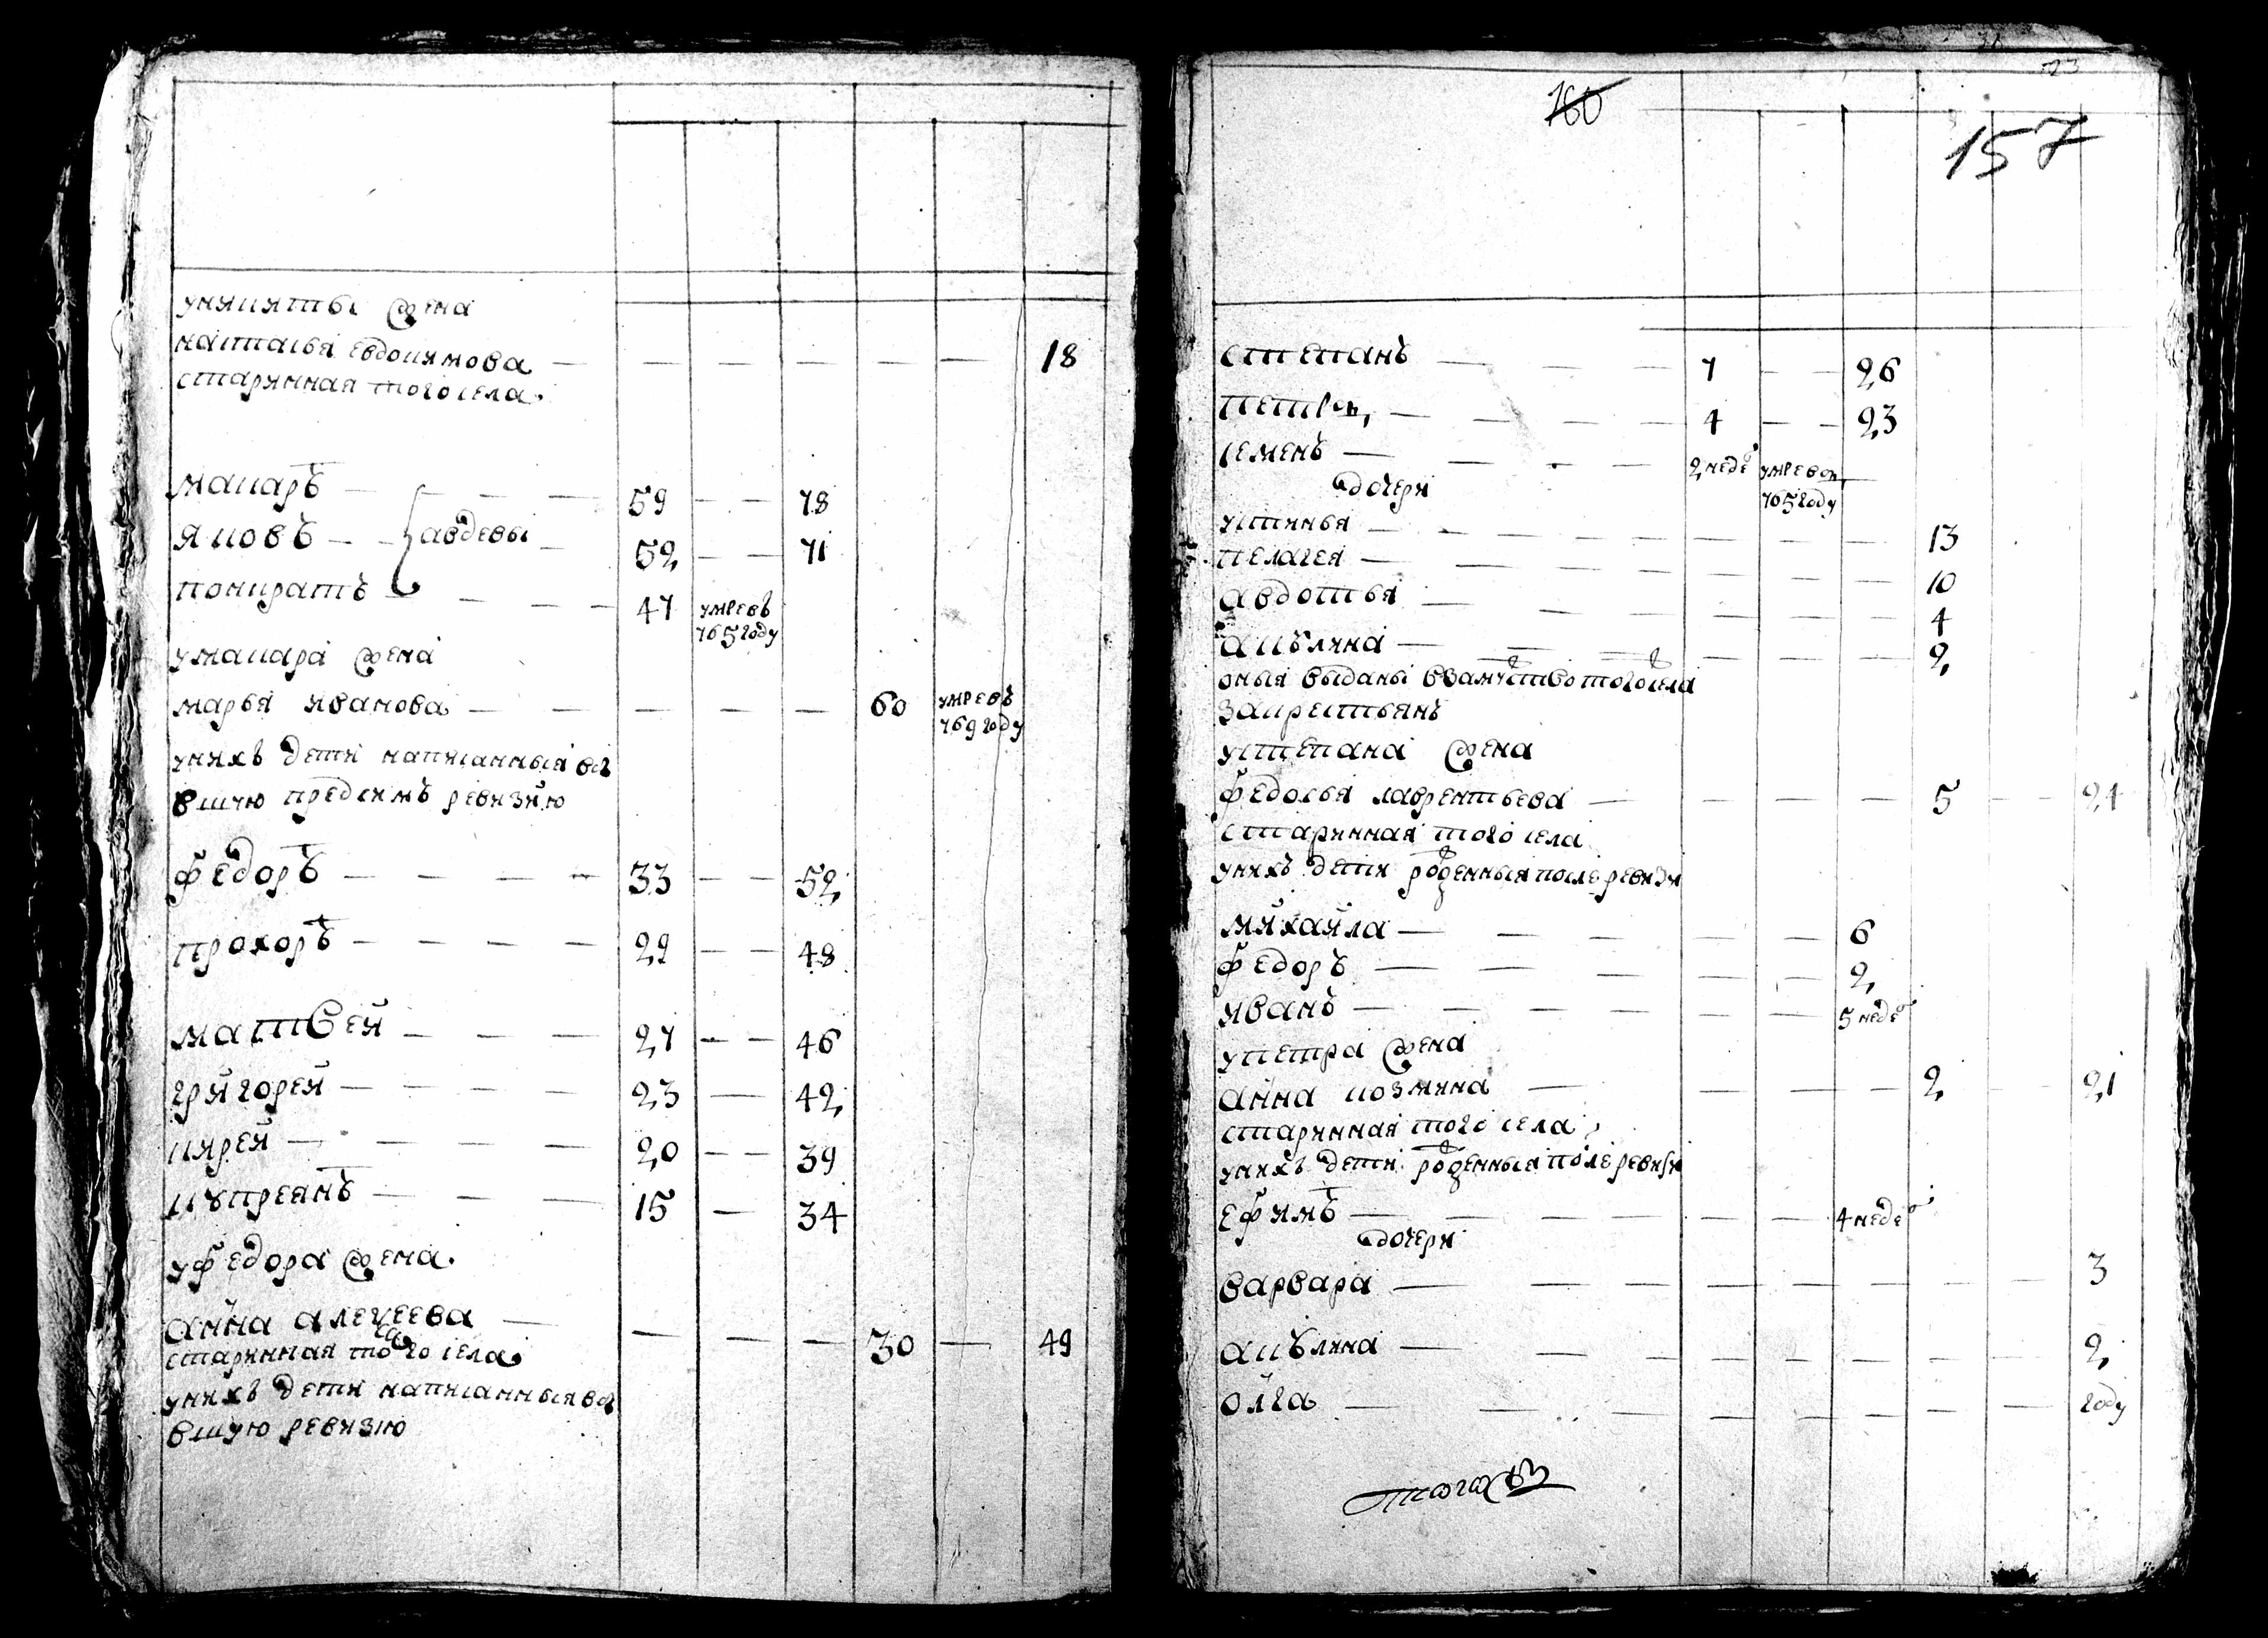 уникиты жена
наталья евдокимова — — — — — — 18
старинная того села.
макаръ — — — 59 — — 78
яковъ — — авдевы — 52 — — 71
покиратъ — — — 47 умре въ
765 году
умакара жена
марья иванова — — — — — 60 умре въ
769 году
унихъ дети написанныя въ
вшую предсимъ ревизию
федоръ — — — — 33 — — 52
прохоръ — — — — 29 — — 48
матвей — — — 27 — — 46
григорей — — — — 23 — 42
кирей — — — — 20 — — 39
куприянъ — — — 15 — 34
уфедора жена.
анна алексеева — — — — 30 — 49
старинная того села
унихъ дети написанныя въ
вшую ревизию
160
157
степанъ — — — — 7 — — 26
петръ, — — — — 4 — — 23
семенъ — — — — 2 неде умре въ —
765 году
дочери
устинья — — — — — — — 13
пелагея — — — — — — — 10
авдотья — — — — — — 4
акулина — — — — — — 2
оныя выданы взамужство тогосела
закрестьянъ
устепана жена
федосья лаврентьева — — — — 5 — — 24
старинная того села
унихъ дети рожденныя после ревизи
михайла — — — — — 6
федоръ — — — — — 2
иванъ — — — — — — 5 неде
упетра жена
анна козмина — — — — 2 — — 21
старинная того села
унихъ дети рожденныя после ревизи
ефимъ — — — — — — 4 неде
дочери
варвара — — — — — — — — 3
акулина — — — — — — — — 2
олга — — — — — — — — году